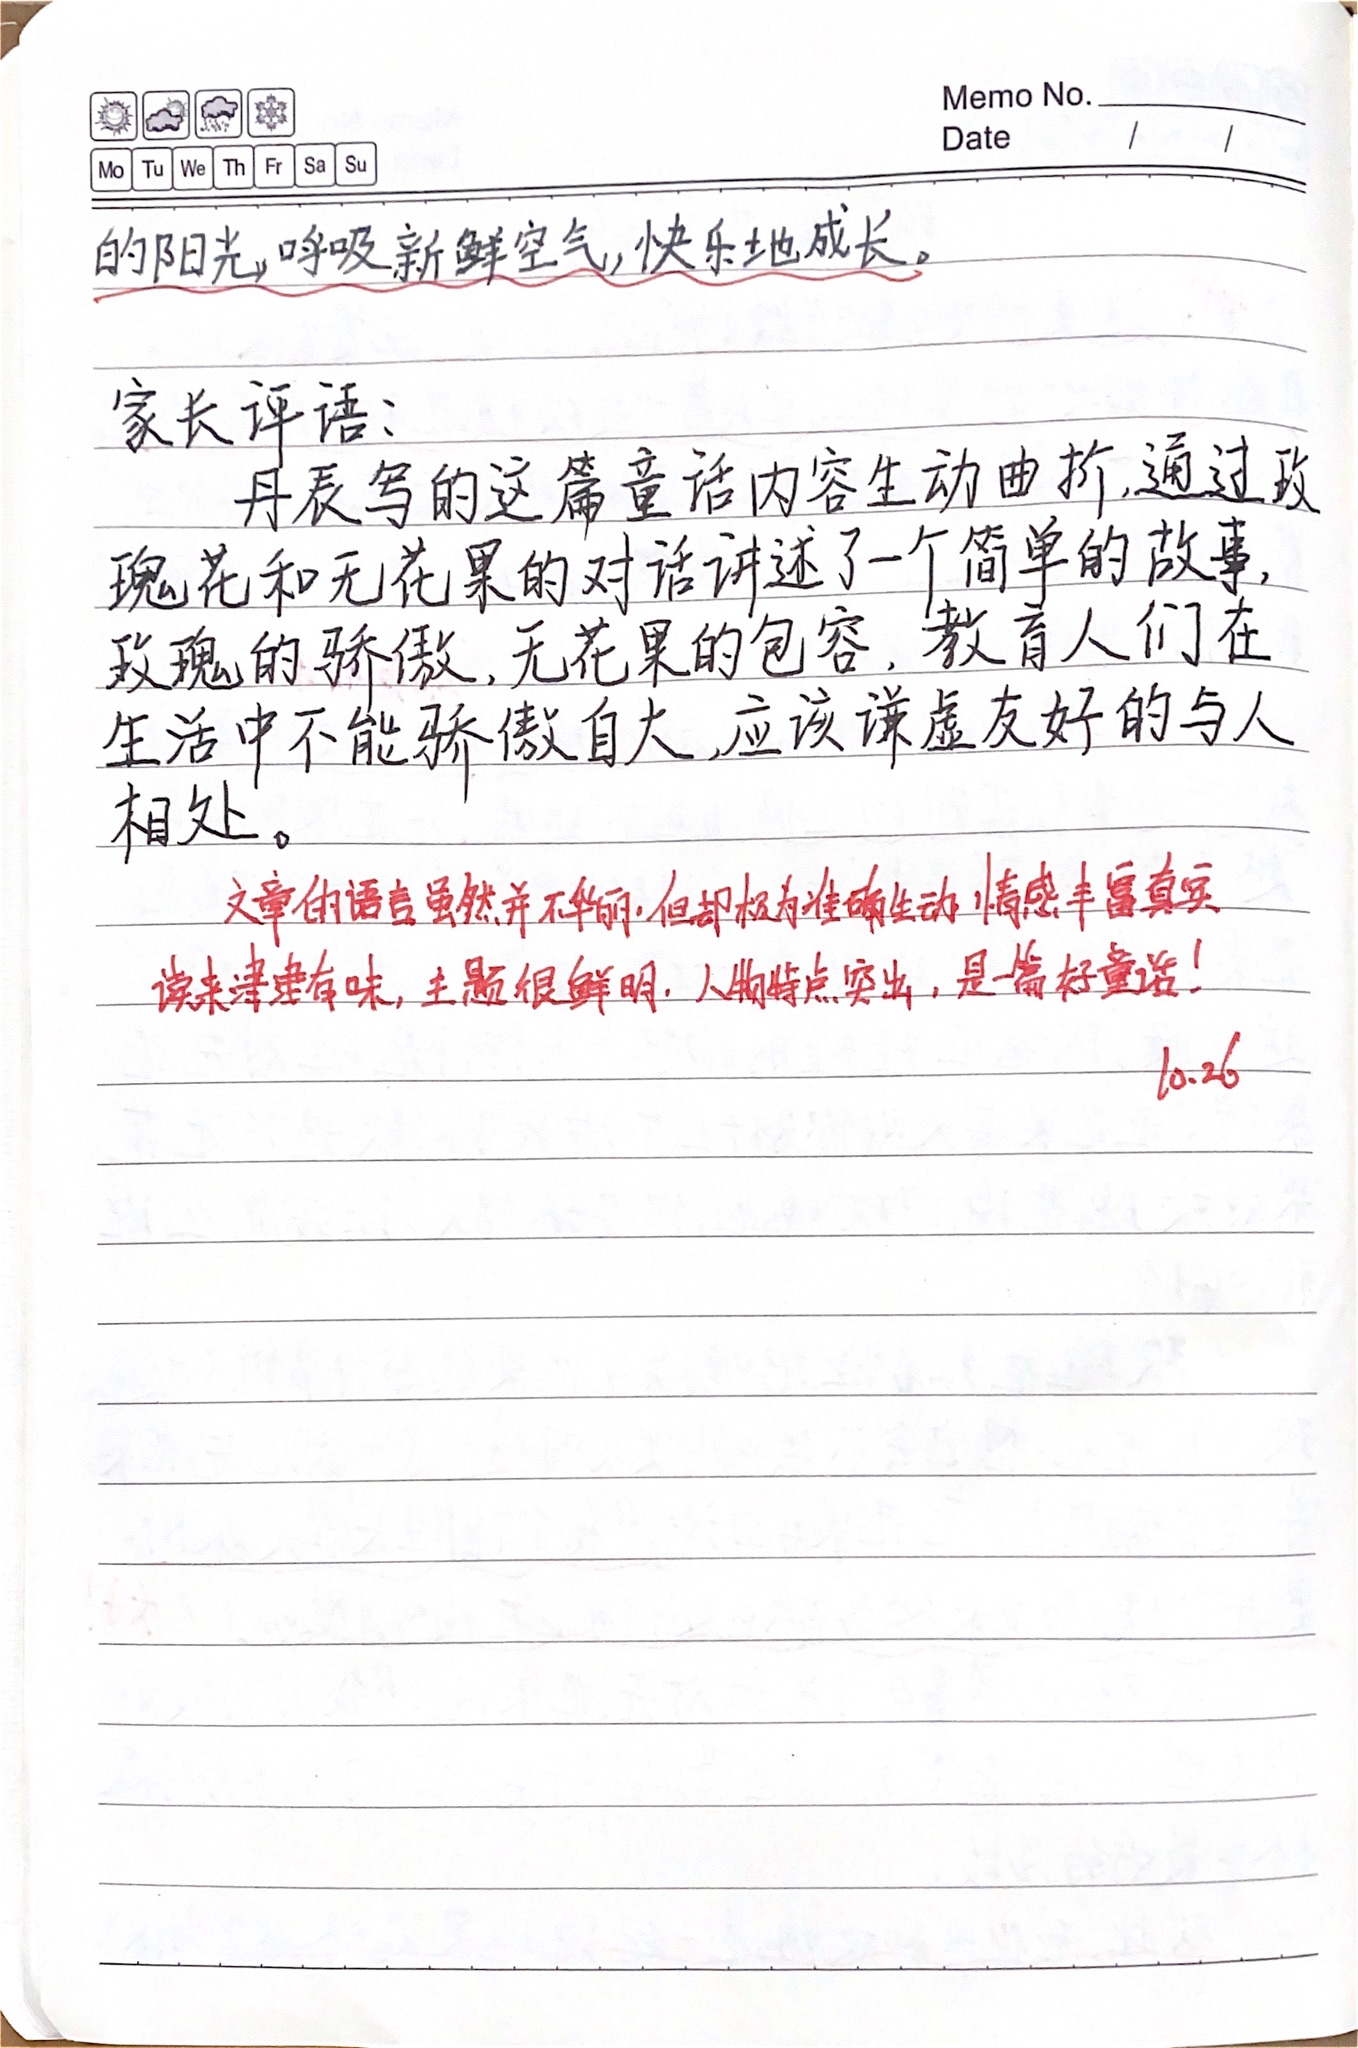 Memo No.
Date / /
Mo Tu We Th Fr Sa Su
的阳光，呼吸新鲜空气，快乐地成长。
家长评语：
丹辰写的这篇童话内容生动曲折，通过玫
瑰花和无花果的对话讲述了一个简单的故事，
玫瑰的骄傲，无花果的包容，教育人们在
生活中不能骄傲自大，应该谦虚友好的与人
相处。
文章的语言虽然并不华丽，但却极为准确生动，情感丰富真实
读来津津有味，主题很鲜明，人物特点突出，是一篇好童话！
10.26